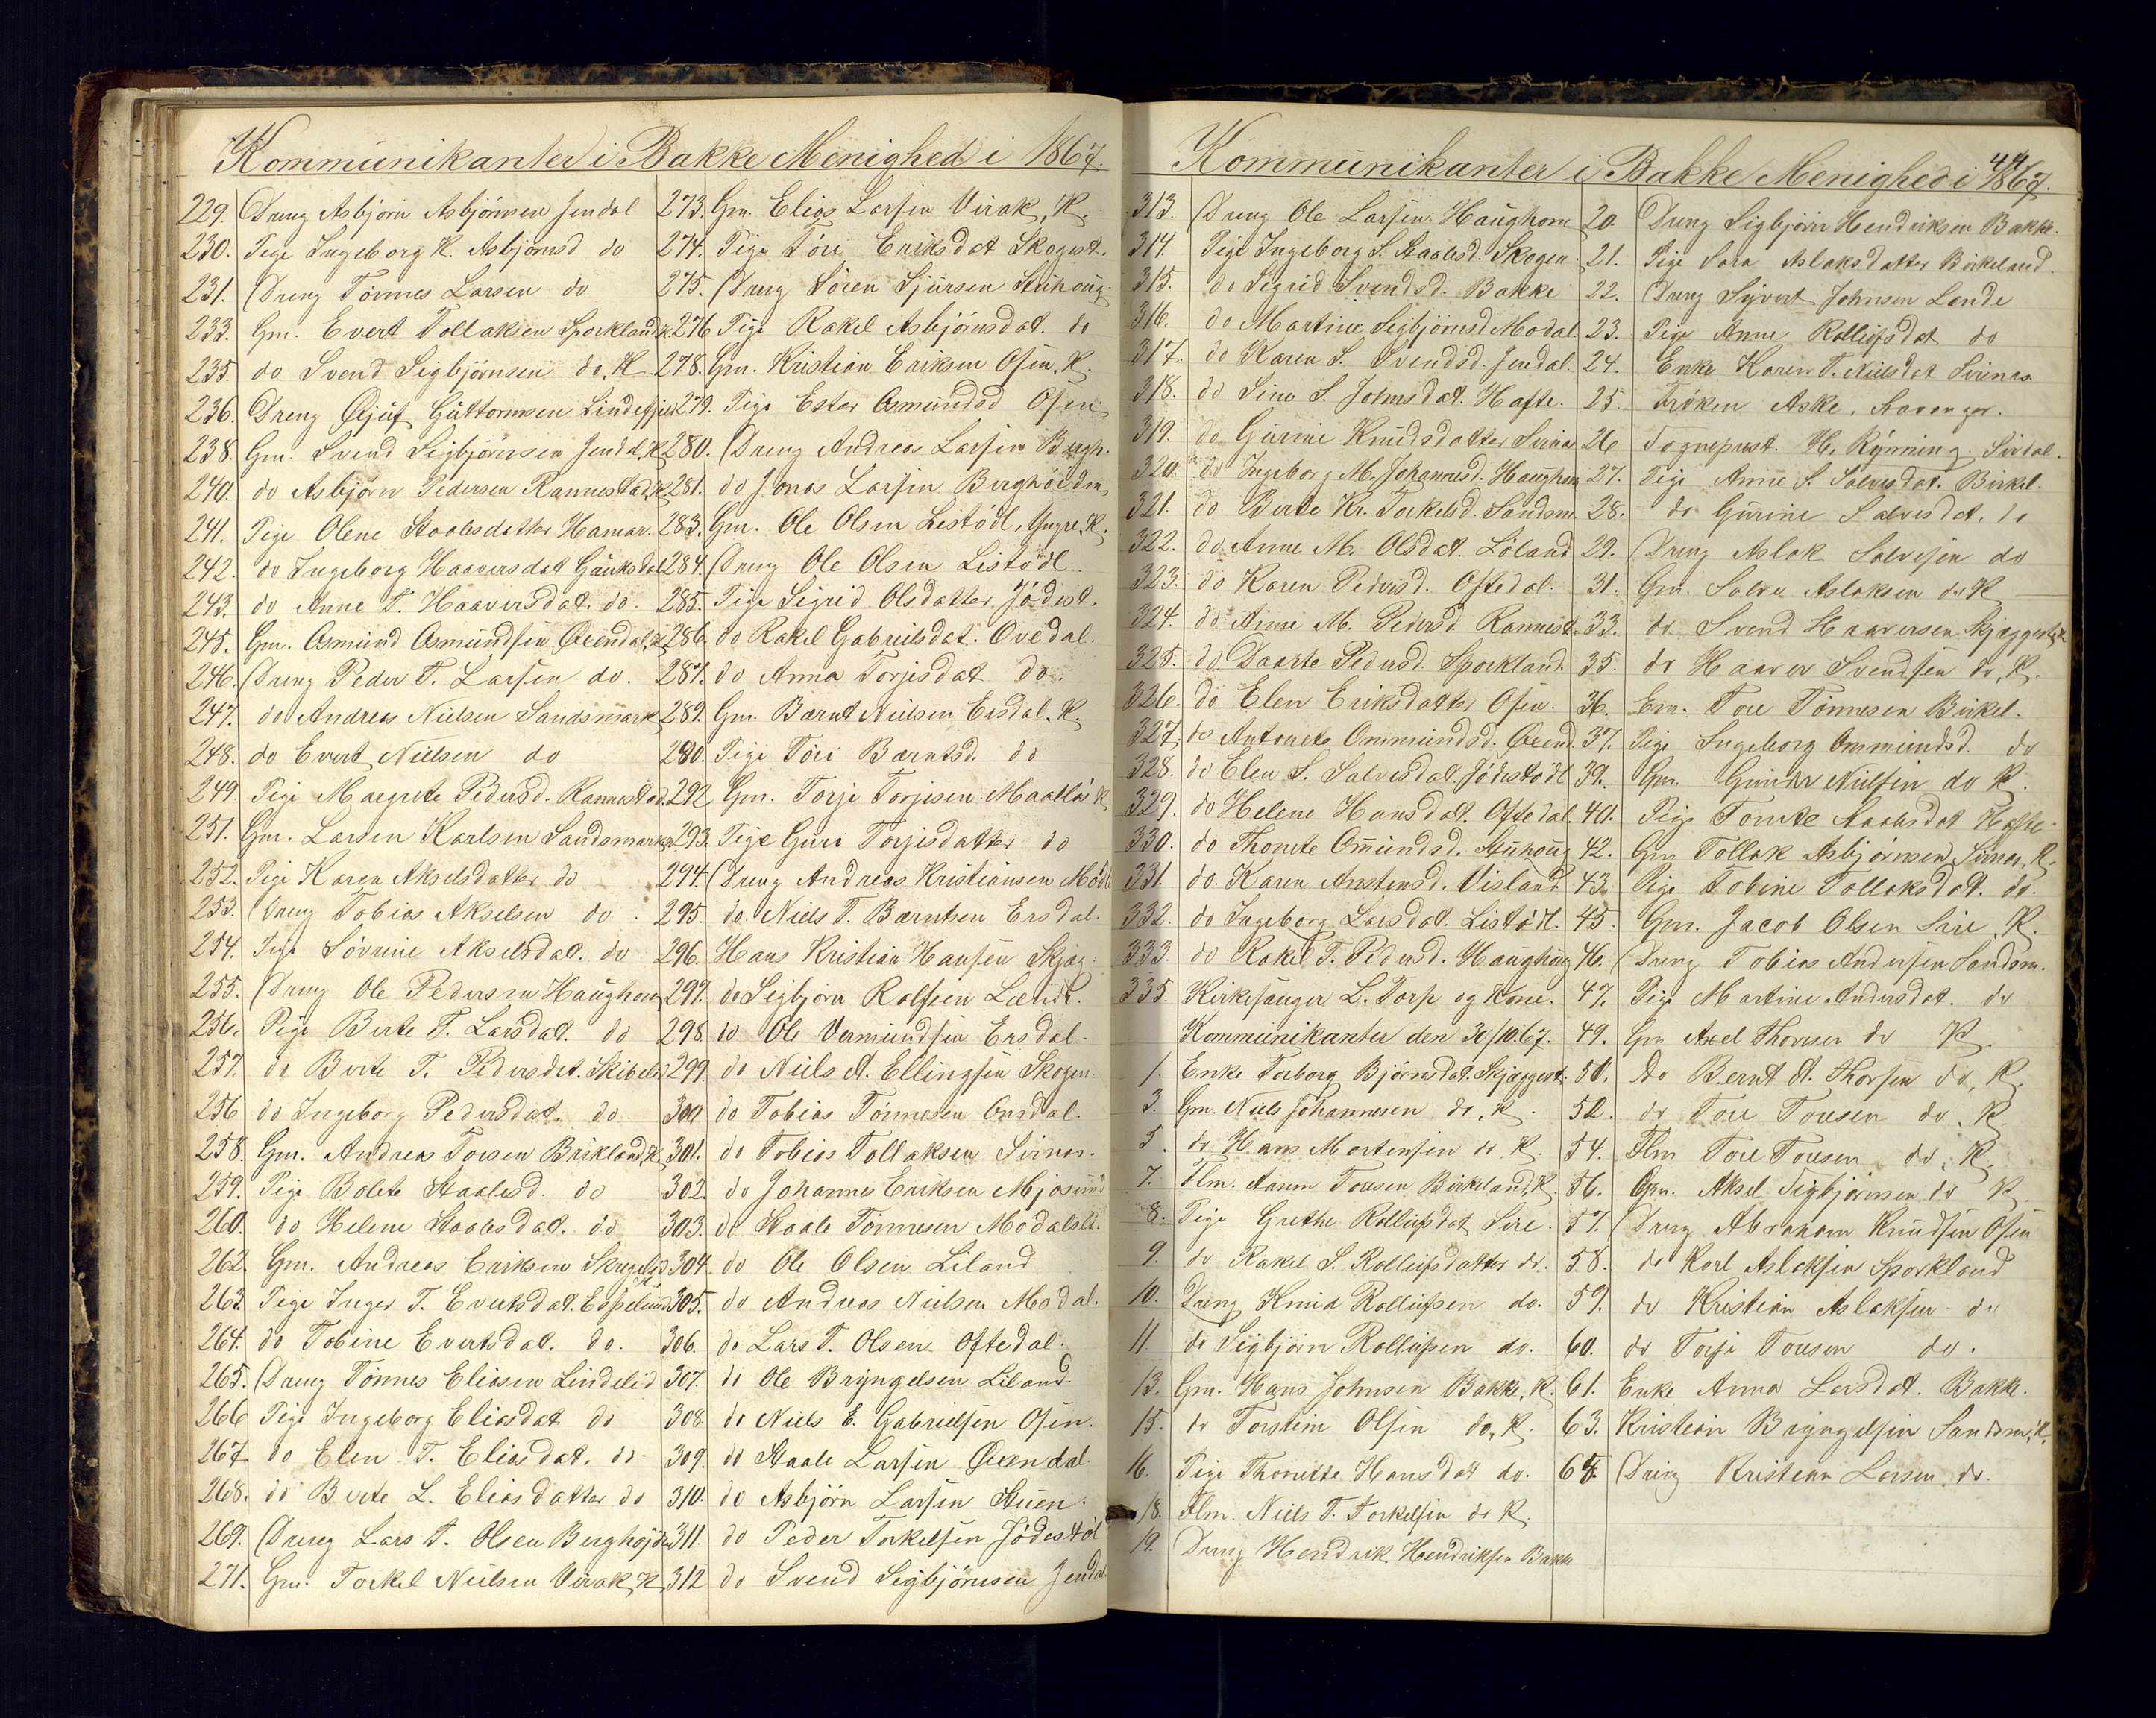 Kommunikanter i Bakke Menighed i 1867.
229. Dreng Asbjörn Asbjörnsen Jendal
230. Pige Ingeborg K. Asbjörnsd do
231. Dreng Tönnes Larsen do
233. Gm. Evert Tollaksen Sporkland, K.
235. do Svend Sigbjörnsen do, K.
236. Dreng Guttormsen
238. Gm. Svend Sigbjörnsen Jendal, K.
240. do Asbjörn Pedersen Rannestad, K.
241. Pige Olene Staalesdatter Hamar.
242. do Ingeborg Haaversdat Gauksdal
243. do Anne T. Haaversdat. do.
245. Gm. Osmund Osmundsen Øiendal, K.
246. Dreng Peder T. Larsen do.
247. do Andreas Nielsen Sandsmark
248. do Evert Nielsen do
249 Pige Margrete Pedersd. Rannestad
251. Gm. Larsen Karlsen Sandsmark, K.
252. Pige Karen Akselsdatter do
253. Dreng Tobias Akselsen do.
254. Pige Sövrine Akselsdat. do
255. Dreng Ole Pedersen Haughom
256. Pige Berte T. Larsdat. do
257. do Berte T. Pedersdat. Skibeli
256 do Ingeborg Pedersdat. do
258. Gm. Andreas Torsen Birkland, K.
259. Pige Bolete Staalesd. do
260. do Helene Staalesdat. do
262. Gm. Andreas Eriksen Skregelid
263. Pige Inger T. Evertsdat. Espelund
264. do Tobine Evertsdat. do.
265. Dreng Tönnes Eliasen Lindelid
266 Pige Ingeborg Eliasdat do
267. do Elen T. Eliasdat. do
268. do Berte L. Eliasdatter do
269. Dreng Lars T. Olsen Berghöjden
271. Gm. Torkel Nielsen Virak, K
273. Gm. Elias Larsen Virak, K.
274. Pige Töri Eriksdat Skogest.
275. Dreng Sören Sjursen Stuhoug.
276 Pige Rakel Asbjörnsdat. do
278. Gm. Kristian Eriksen Osen, K.
279. Pige Ester Osmundsd Osen
280. Dreng Andreas Larsen Bergh.
281. do Jonas Larsen Berghöidn
283. Gm. Ole Olsen Listödl, Gygre, K.
284. Dreng Ole Olsen Listödl.
285. Pige Sigrid Olsdatter Jödest.
286. do Rakel Gabrielsdat. Ovedal.
287. do Anna Torjisdat do.
289. Gm. Bærnt Nielsen Ersdal, K.
290. Pige Töri Bærntsd. do
292 Gm. Torje Torjesen Maallös K
293. Pige Guri Torjisdatter do
294. Dreng Andreas Kristiansen Mödl
295. do Niels T. Bærntsen Ersdal.
296. Hans Kristian Hansen Skjæg.
297. do Sigbjörn Rolfsen Lænde.
298. do Ole Vermundsen Ersdal.
299. do Niels A. Ellingsen Skogen.
300 do Tobias Tönnesen Omdal.
301. do Tobias Tollaksen Sirnes.
302. do Johannes Eriksen Mjosund
303. do Staale Tönnesen Modalsli.
304. do Ole Olsen Liland
305. do Andreas Nielsen Modal.
306. do Lars T. Olsen Oftedal.
307. do Ole Bryngelsen Liland.
308. do Niels E. Gabrielsen Osen.
309. do Staale Larsen Øiendal
310. do Asbjörn Larsen Stuen.
311. do Peder Torkelsen Jödestöl
312 do Svend Sigbjörnsen Jendal
44
Kommunikanter i Bakke Menighed i 1867.
313. Dreng Ole Larsen Haughom
314. Pige Ingeborg S. Staalesd. Skogen.
315. do Sigrid Svendsd. Bakke
316. do Martine Sigbjörnsd Modal.
317. do Karen S. Svendsd. Jendal.
318. do Sine S. Johnsdat. Hafte.
319. do Gurine Knudsdatter Sirnes
320. do Ingeborg M. Johannesd. Haughom
321. do Berte Kr. Torkelsd. Sandsm.
322. do Anne M. Olsdat. Löland
323. do Karen Pedersd. Oftedal.
324. do Anne M. Pedersd. Rannest.
325. do Daarte Pedersd. Sporkland.
326. do Elen Eriksdatter Osen.
327. do Antonete Ommundsd. Øiend.
328. do Elen S. Salvesdat. Jödestödl
329. do Helene Hansdat. Oftedal.
330. do Thonete Omundsd. Stuhoug
331. do. Karen Anstensd. Visland
332. do Ingeborg Larsdat. Listödl.
333. do Rakel T. Pedersd. Haughoug
335. Kirkesanger L. Torp og Kone.
Kommunikanter den 30/10 67.
1. Enke Torborg Björnsdat. Skjæggest.
3. Gm. Niels Johannesen do, K.
5. do Hans Mortensen do K.
7. Flm. Aanen Toresen Birkeland, K.
8. Pige Grethe Rolleifsdat Sire.
9. do Rakel S. Rolleifsdatter do.
10. Dreng Knud Rolleifsen do.
11. do Sigbjörn Rolleifsen do.
13. Gm. Hans Johnsen Bakke, K.
15. do Torstein Olsen do, K.
16. Pige Thonette Hansdat do.
18. Flm. Niels T. Torkelsen do K.
19. Dreng Hendrik Hendriksen Bakke
20. Dreng Sigbjörn Hendriksen Bakke.
21. Pige Sara Aslaksdatter Birkeland.
22. Dreng Sivert Johnsen Lande
23. Pige Anne Rolleifsdat do
24. Enke Karen T. Nielsdat Sirenes
25. Fröken Aske, Stavanger.
26 Sogneprest. H. Rynning Sirdal.
27. Pige Anne S. Salvesdat. Birkel.
28. do Gurine Salvesdat. do
29. Dreng Aslak Salvesen do
31. Gm. Salve Aslaksen do K
33. do Svend Haaversen Skjæggest, K
35. do Haaver Svendsen do, K.
36. Em. Tore Tönnesen Birkel.
37. Pige Ingeborg Ommundsd. do
39. Gm. Gunder Nielsen do K.
40. Pige Tonete Staalesdat Hafte.
42. Gm Tollak Asbjörnsen Sirnes, K.
43. Pige Tobine Tollaksdat. do.
45. Gm. Jacob Olsen Sire, K.
46. Dreng Tobias Andersen Sandsm.
47. Pige Martine Andersdat. do
49. Gm Axel Thorsen do K.
50. Do Bernt A. Thorsen do, K.
52. do Tore Toresen do, K
54. Flm Tore Toresen do, K.
56. Gm. Aksel Sigbjörnsen do K
57. Dreng Abraham Knudsen Osen
58. do Karl Aslaksen Sporkland
59. do Kristian Aslaksen do
60. do Torje Toresen do.
61. Enke Anna Larsdat. Bakke.
63. Kristian Bryngelsen Sandsm, K.
64. Dreng Kristian Larsen do.